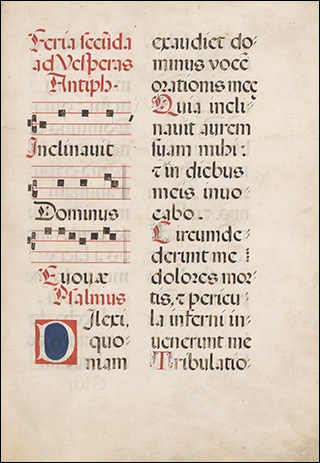 Feria secūda
ad Vesperas
Antiph·
Inclinauit
Dominus
Euouæ
Psalmus
Dilexi,
quo-
niam
exaudiet do-
minus vocē
orationis mee
Quia incli-
nauit aurem
suam mihi:
⁊ in diebus
meis inuo-
cabo.
Circumde-
derunt me
dolores mor-
tis, ⁊ pericu-
la inferni in-
uenerunt me
Tribulatio-